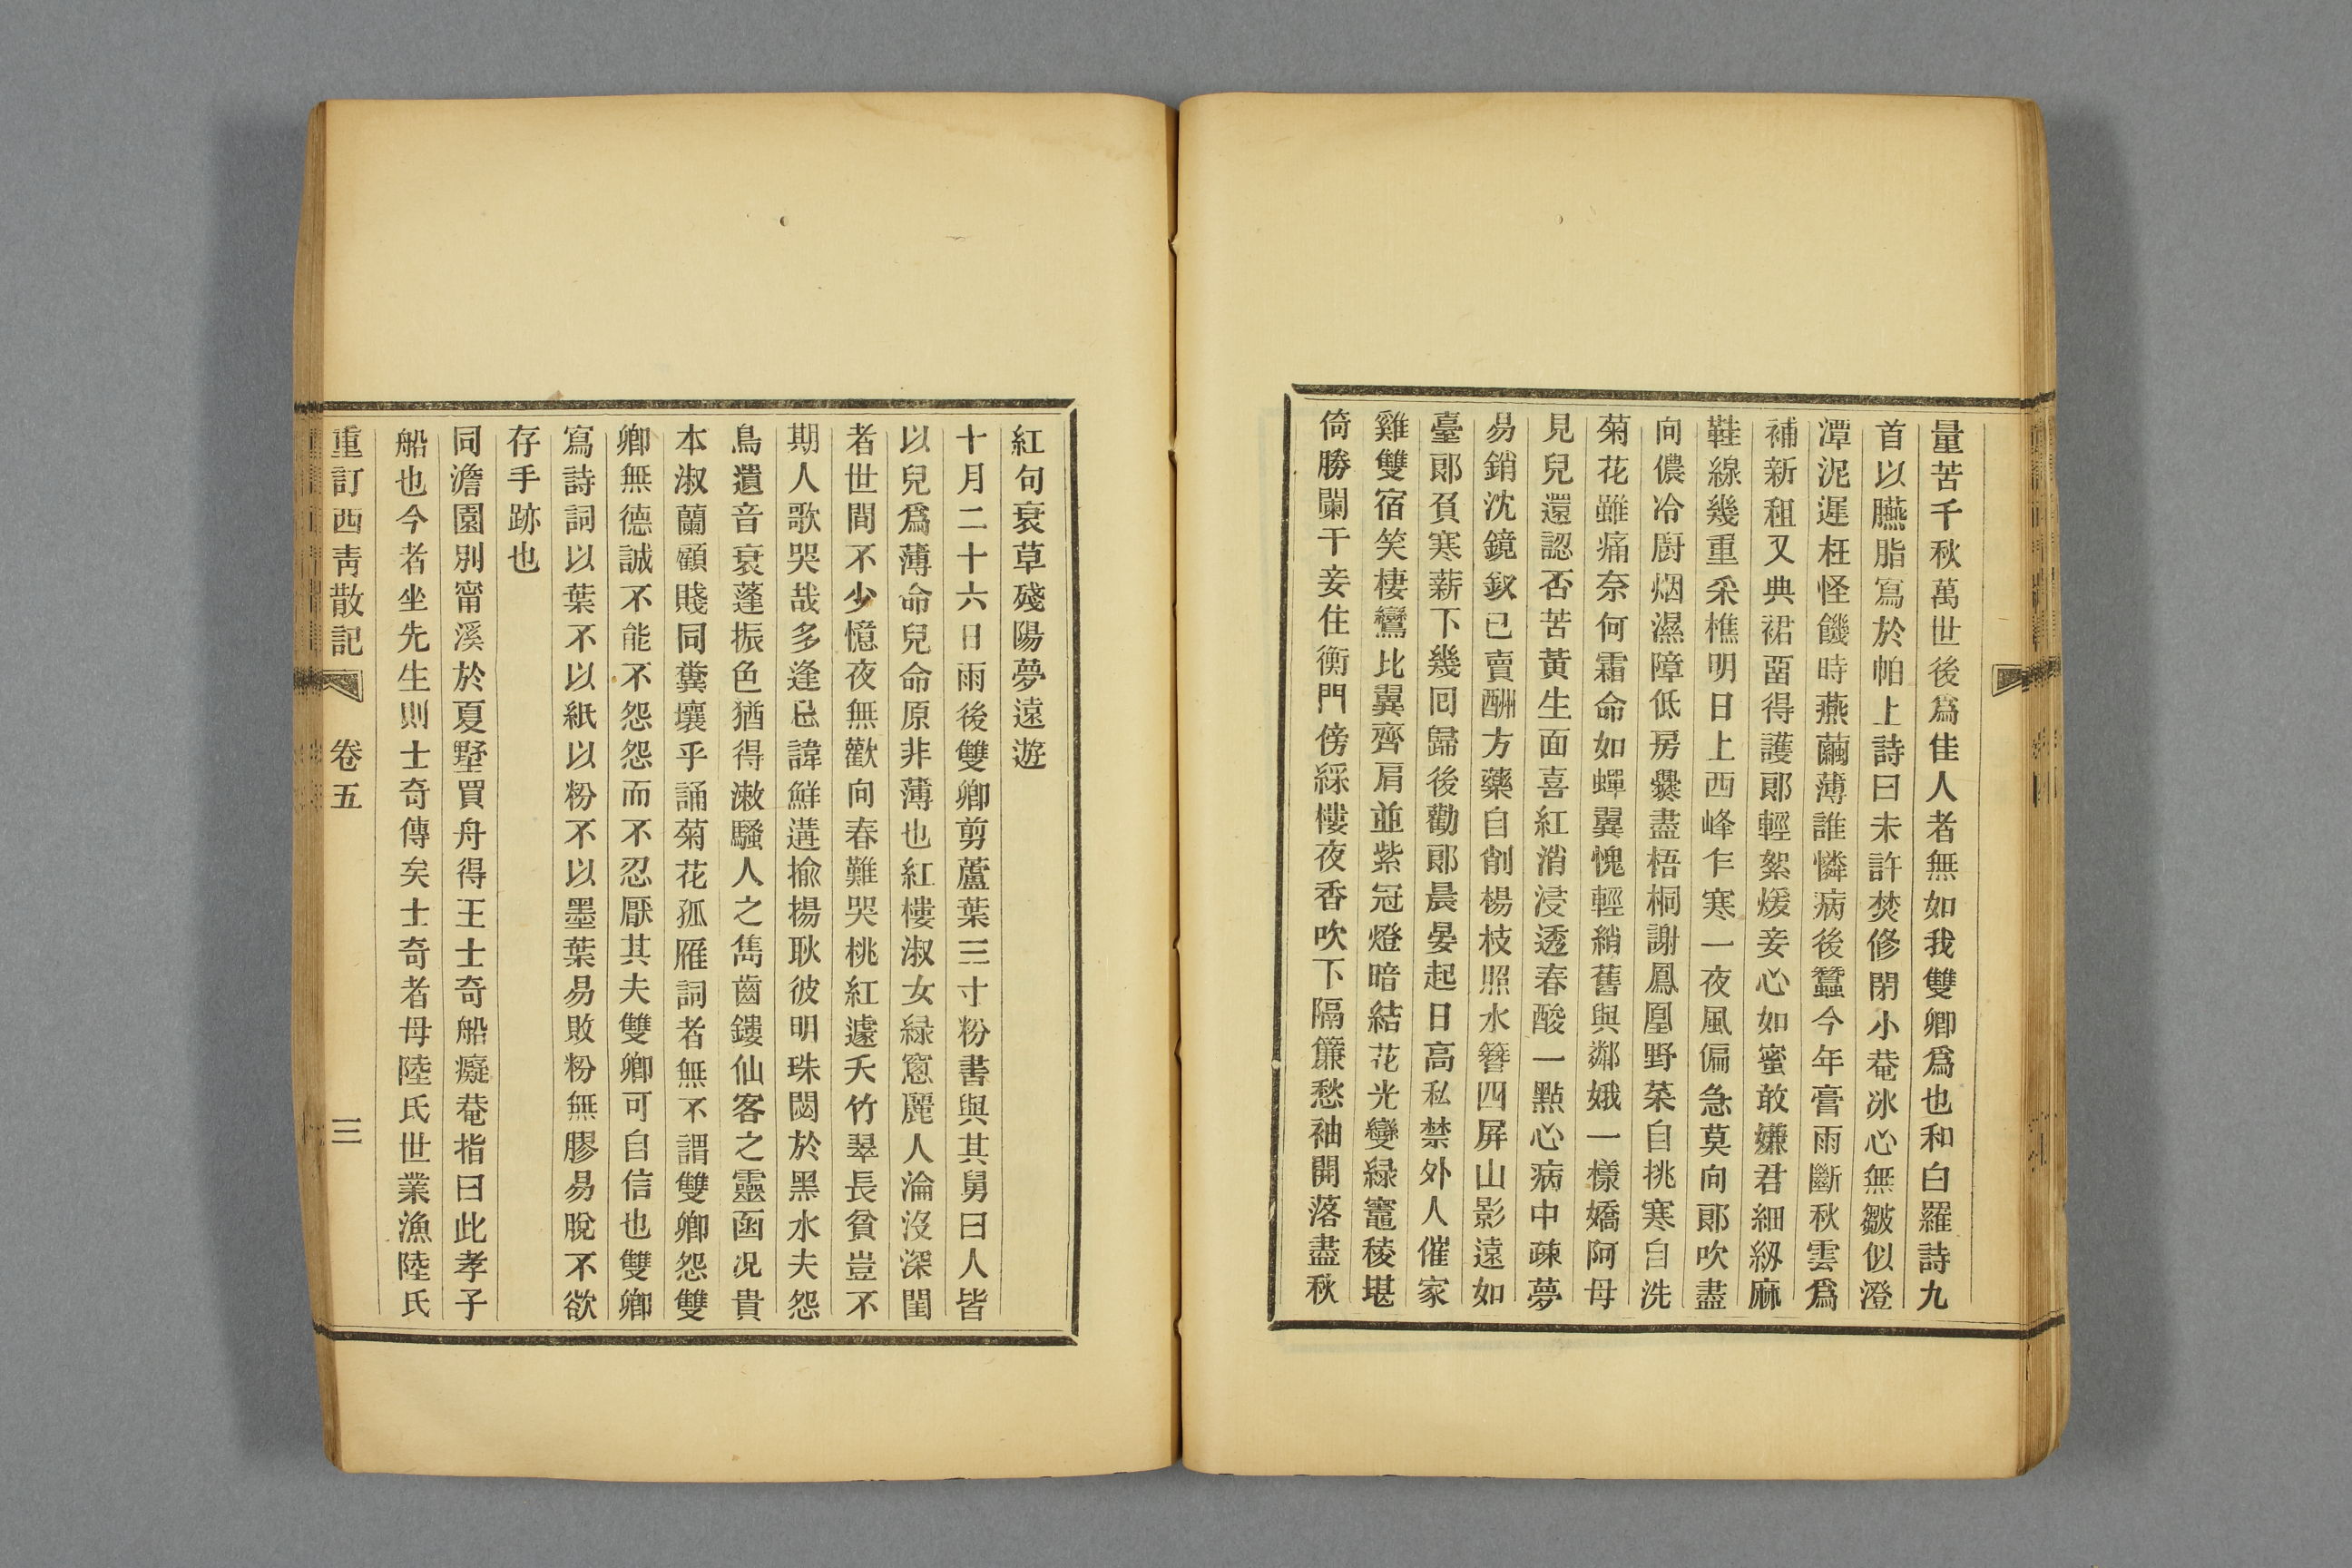 量苦千秋萬世後爲佳人者無如我雙卿爲也和白羅詩九
首以臙脂寫於帕上詩曰未許焚修閉小菴冰心無皺似澄
潭泥遲枉怪饑時燕繭薄誰憐病後蠶今年膏雨斷秋雲爲
補新租又典裙畱得護郎輕絮煖妾心如蜜敢嫌君細紉麻
鞋線幾重采樵明日上西峰乍寒一夜風偏急莫向郎吹盡
向儂冷廚烟濕障低房爨盡梧桐謝鳳凰野菜自挑寒自洗
菊花雖痛奈何霜命如蟬翼愧輕綃舊與鄰娥一樣嬌阿母
見兒還認否苦黃生面喜紅消浸透春酸一點心病中疎夢
易銷沈鏡釵已賣酬方藥自削楊枝照水簪四屏山影遠如
臺郎負寒薪下幾回歸後勸郎晨晏起日高私禁外人催家
雞雙宿笑棲鸞比翼齊肩並紫冠燈暗結花光變緑竈稜堪
倚勝闌干妾住衡門傍綵樓夜香吹下隔簾愁袖開落盡秋
紅句衰草殘陽夢遠遊
十月二十六日雨後雙卿剪蘆葉三寸粉書與其舅曰人皆
以兒爲薄命兒命原非薄也紅樓淑女緑窻麗人淪沒深閨
者世間不少憶夜無歡向春難哭桃紅遽夭竹翠長貧豈不
期人歌哭哉多逢忌諱鮮遘揄揚耿彼明珠閟於黑水夫怨
鳥遺音衰蓬振色猶得漱騷人之雋齒鏤仙客之靈函况貴
本淑蘭顧賤同糞壤乎誦菊花孤雁詞者無不謂雙卿怨雙
卿無德誠不能不怨怨而不忍厭其夫雙卿可自信也雙卿
寫詩詞以葉不以紙以粉不以墨葉易敗粉無膠易脫不欲
存手跡也
同澹園別甯溪於夏墅買舟得王士奇船癡菴指曰此孝子
船也今者坐先生則士奇傳矣士奇者母陸氏世業漁陸氏
重訂西靑散記 卷五 三